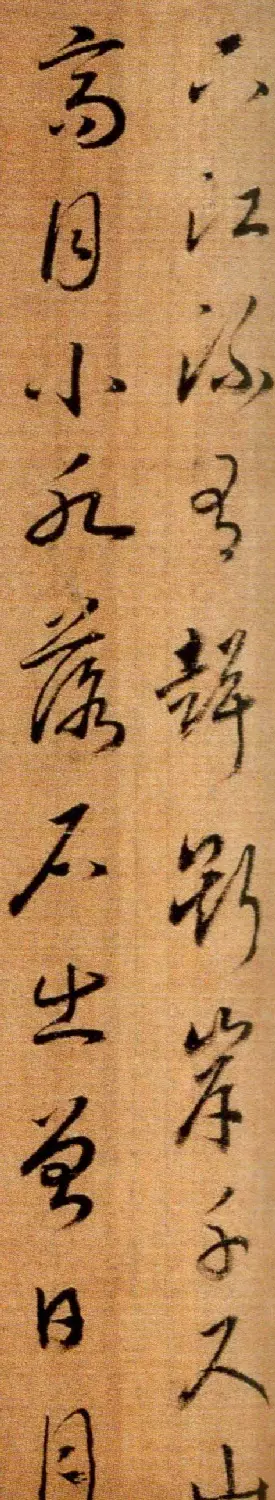 下江流有聲斷岸千尺山
高月小水落石出曾日月